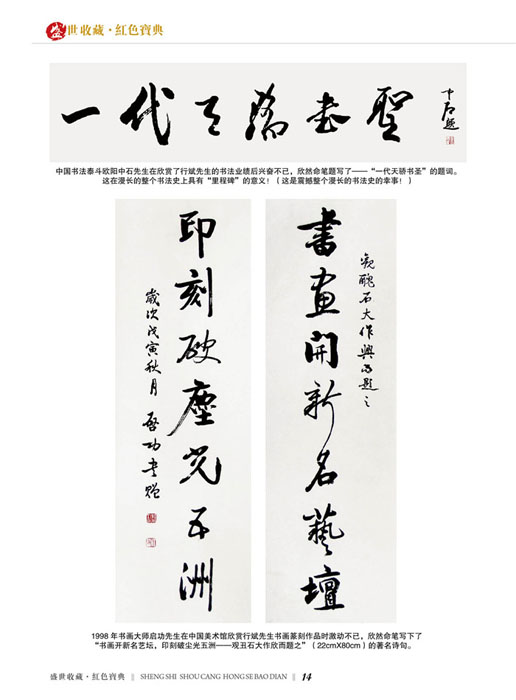 盛世收藏·红色寶典
一代天骄书聖
中石题
中国书法泰斗欧阳中石先生在欣赏了行斌先生的书法业绩后兴奋不已，欣然命笔题写了——“一代天骄书圣”的题词。
这在漫长的整个书法史上具有“里程碑”的意义！（这是震撼整个漫长的书法史的幸事！）
觀醜石大作興而题之
書画開新名藝壇
印刻破塵光五洲
歲次戊寅秋月 启功書贈
1998 年书画大师启功先生在中国美术馆欣赏行斌先生书画篆刻作品时激动不已，欣然命笔写下了
“书画开新名艺坛，印刻破尘光五洲——观丑石大作欣而题之”（22cmX80cm）的著名诗句。
盛世收藏·紅色寶典 || SHENG SHI SHOU CANG HONG SE BAO DIAN || 14